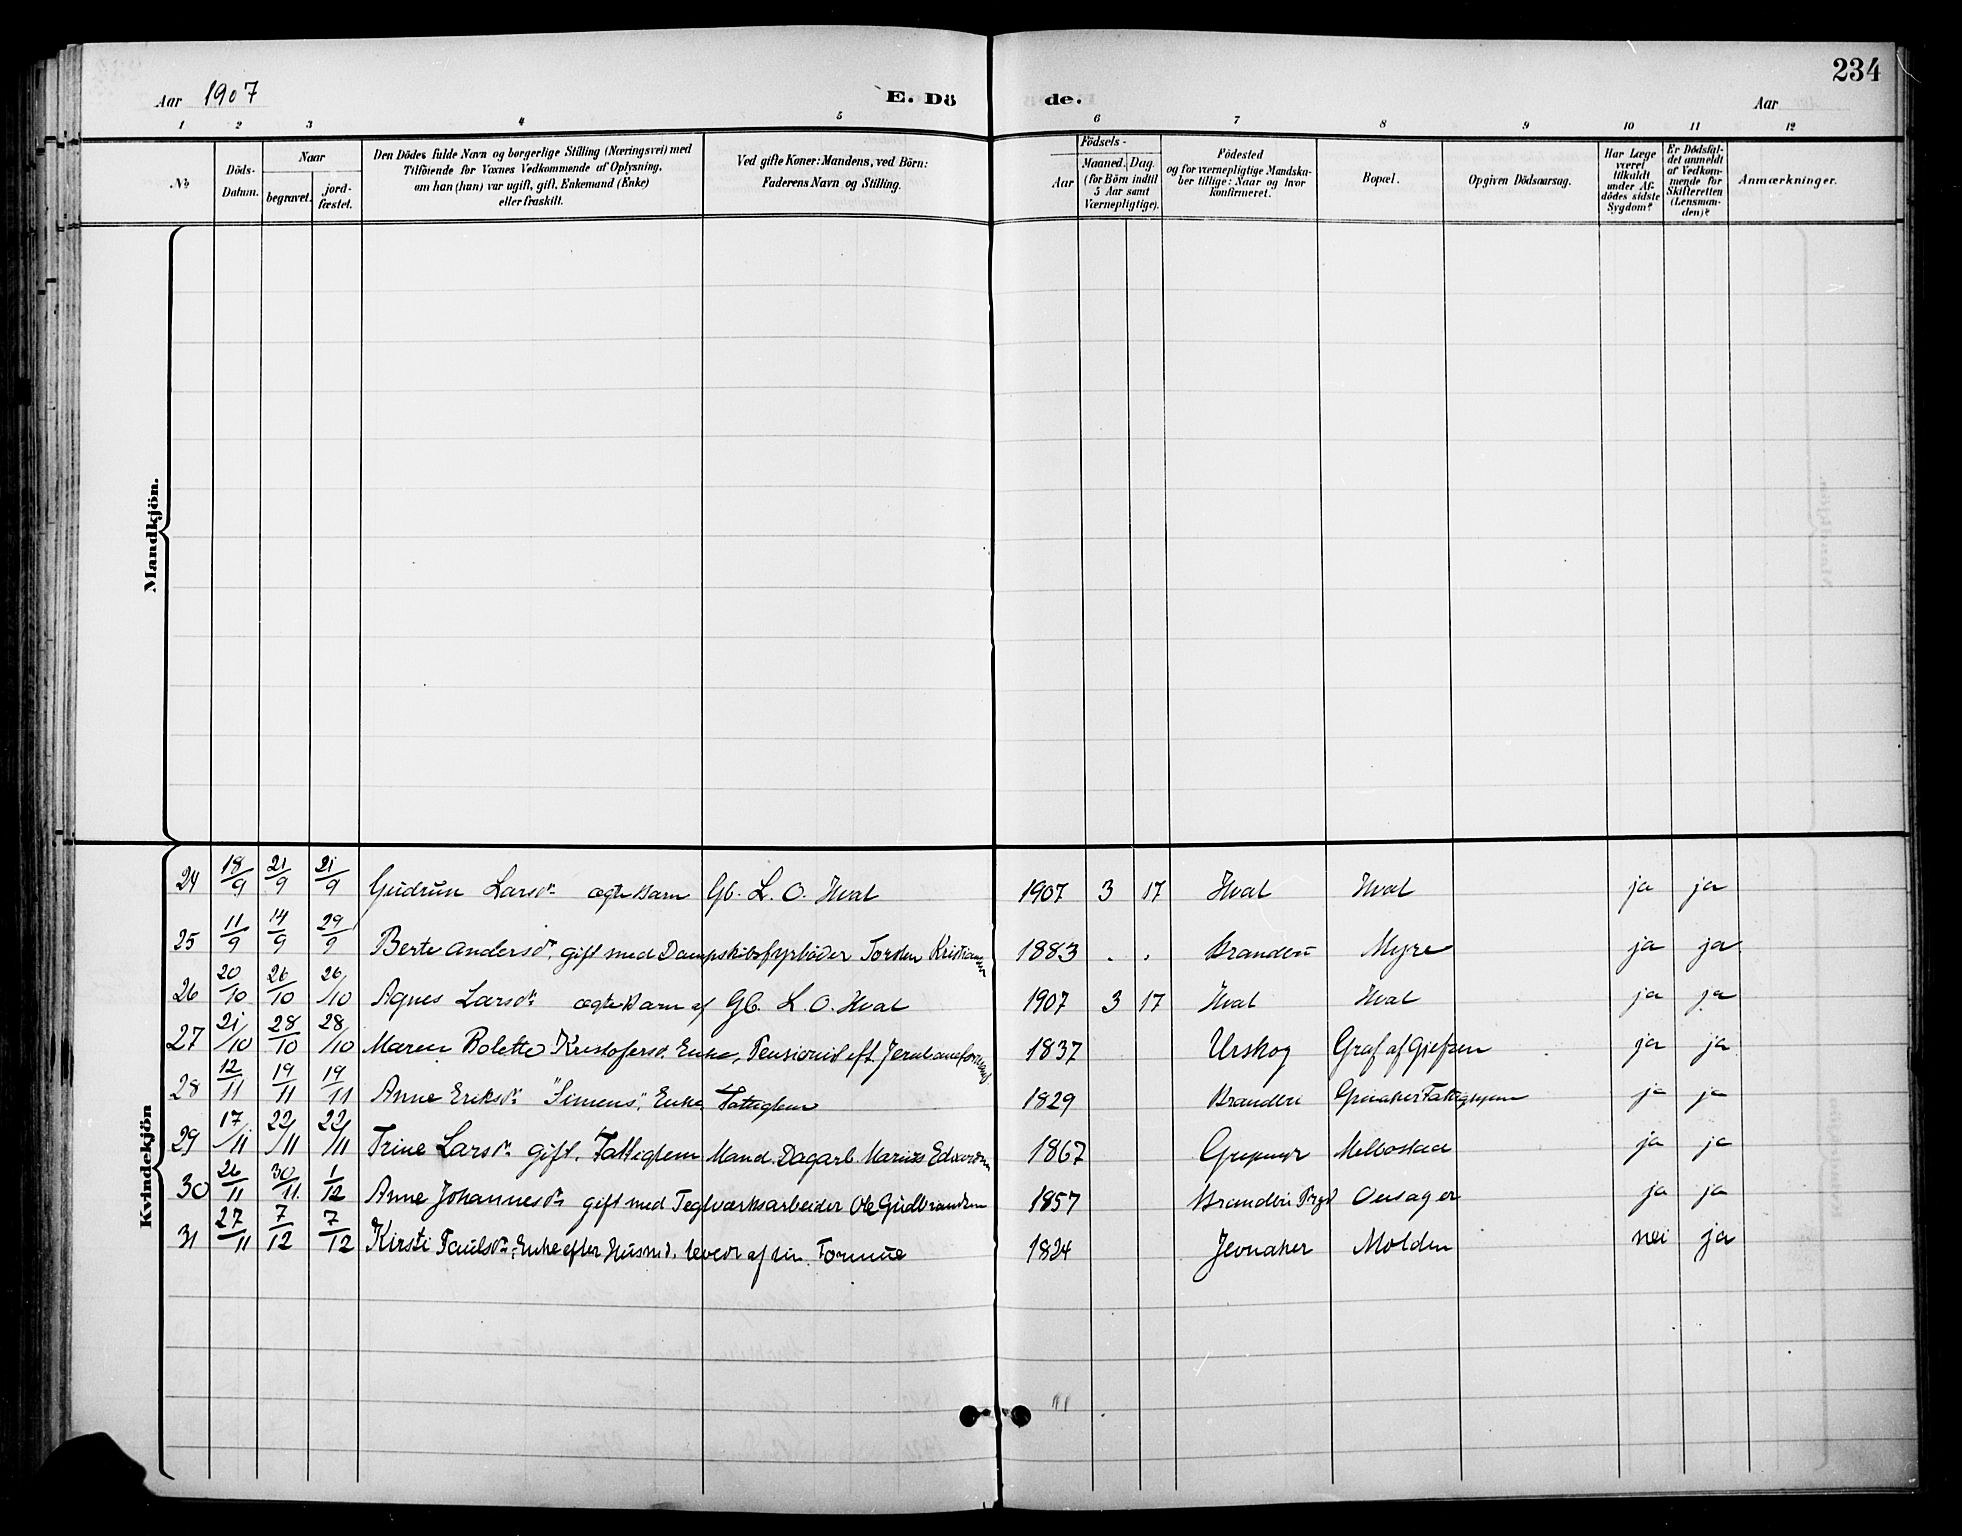 234
Aar 1907 E. Dö de. Aar
1 2 3 4 5 6 7 8 9 10 11 12
No.
Döds-
Datum.
Naar
begravet.
jord-
fæstet.
Den Dödes fulde Navn og borgerlige Stilling (Næringsvei) med
Tilföiende for Voxnes Vedkommende af Oplysning,
om han (hun) var ugift, gift, Enkemand (Enke)
eller fraskilt.
Ved gifte Koner: Mandens, ved Börn:
Faderens Navn og Stilling.
Födsels-
Aar
Maaned. Dag.
(for Börn indtil
5 Aar samt
Værnepligtige).
Födested
og for værnepligtige Mandska-
ber tillige: Naar og hvor
konfirmeret.
Bopæl.
Opgiven Dödsaarsag.
Har Læge
været
tilkaldt
under Af-
dödes sidste
Sygdom?
Er Dödsfal-
det anmeldt
af Vedkom-
mende for
Skifteretten
(Lensman-
den)?
Anmærkninger.
Mandkjön.
Kvindekjön
24 18/9 21/9 21/9 Gudrun Larsdr. ægte Barn Gb. L. O. Hval 1907 3 17 Hval Hval ja ja
25 11/9 14/9 29/9 Berte Andersdr. gift med Dampskibsfyrböder Torsten Kristiansen 1883 . . Brandbu Myre ja ja
26 20/10 26/10 26/10 Agnes Larsdr. ægte Barn af Gb. L. O. Hval 1907 3 17 Hval Hval ja ja
27 21/10 28/10 28/10 Maren Bolette Kristofersd. Enke, Pensionist eft. 1837 Urskog Graf af ja ja
28 12/11 19/11 19/11 Anne Eriksdr. "Simens", Enke Fattiglem 1829 Brandbu ja ja
29 17/11 22/11 22/11 Trine Larsdr. gift. Fattiglem Mand. Dagarb. Marius Edvardsen 1867 Melbostad ja ja
30 26/11 30/11. 1/12 Anne Johannesdr. gift med Teglværksarbeider Ole Gudbrandsen 1857 Brandbu Prgd Oensager ja ja
31 27/11 7/12 7/12 Kirsti Paulsdr. Enke efter Husmd. levede af sin Formue 1824 Jevnaker Molden nei ja